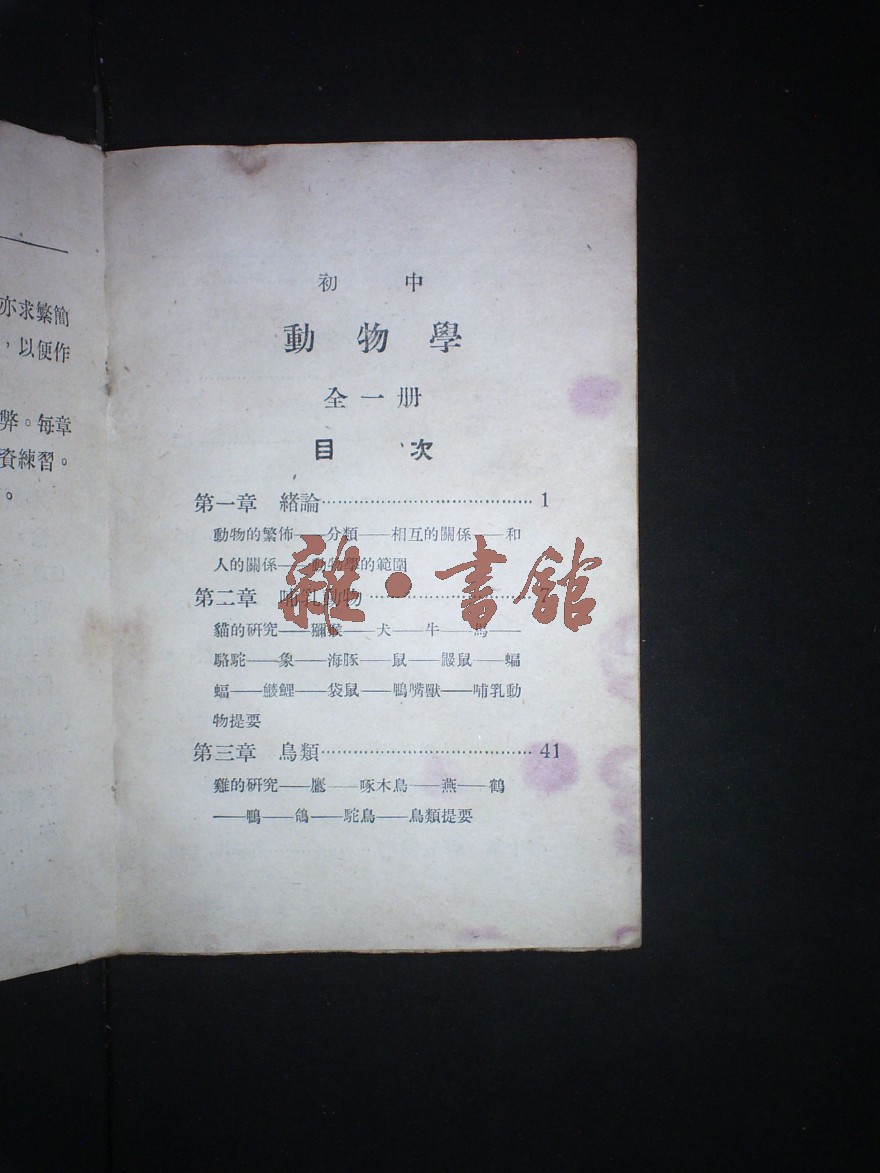 亦求繁簡
，以便作
弊。每章
資練習。
。
初中
動物學
全一册
目次
第一章 緒論…………………………………1
動物的繁佈——分類——相互的關係——和
人的關係——動物學的範圍
第二章 哺乳動物…………………………
貓的研究——獼猴——犬——牛——馬——
駱駝——象——海豚——鼠——鼹鼠——蝙
蝠——鯪鯉——袋鼠——鴨嘴獸——哺乳動
物提要
第三章 鳥類…………………………………41
雞的研究——鷹——啄木鳥——燕——鶴
——鴨——鴿——駝鳥——鳥類提要
雜·書館